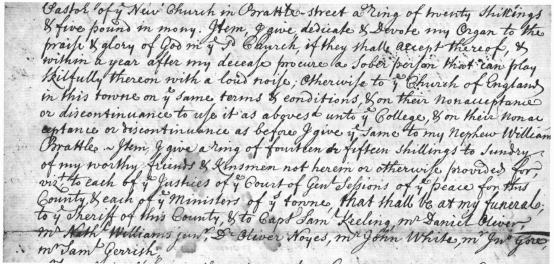 Pastor of yᵉ New Church in Brattle-street a ring of twenty Shillings
& five pound in mony. Item, I give, dedicate & Devote my Organ to the
praise & glory of God in yᵉ sᵈ Church, if they shall accept thereof, &
within a year after my decease procure a Sober person that can play
skilfully thereon with a loud noise; otherwise to yᵉ Church of England
in this towne on yᵉ same terms & conditions, & on their nonacceptance
or discontinuance to use it as abovesᵈ unto yᵉ College, & on their nonac
ceptance or discontinuance as before I give yᵉ same to my Nephew William
Brattle. Item, I give a ring of fourteen or fifteen shillings to sundry
of my worthy friends & kinsmen not herein or otherwise provided for
vizᵗ to each of yᵉ Justices of yᵉ Court of Genˡˡ Sessions of yᵉ peace for this
County, & each of yᵉ Ministers of yᵉ towne, that shall be at my funeral;
to yᵉ Sheriff of this County, & to Capᵗ Samˡ Keeling, mʳ Daniel Oliver,
mʳ Nathˡ Williams junʳ, Dʳ Oliver Noyes, mʳ John White, mʳ Jnᵒ Gore
mʳ Samˡ Gerrish